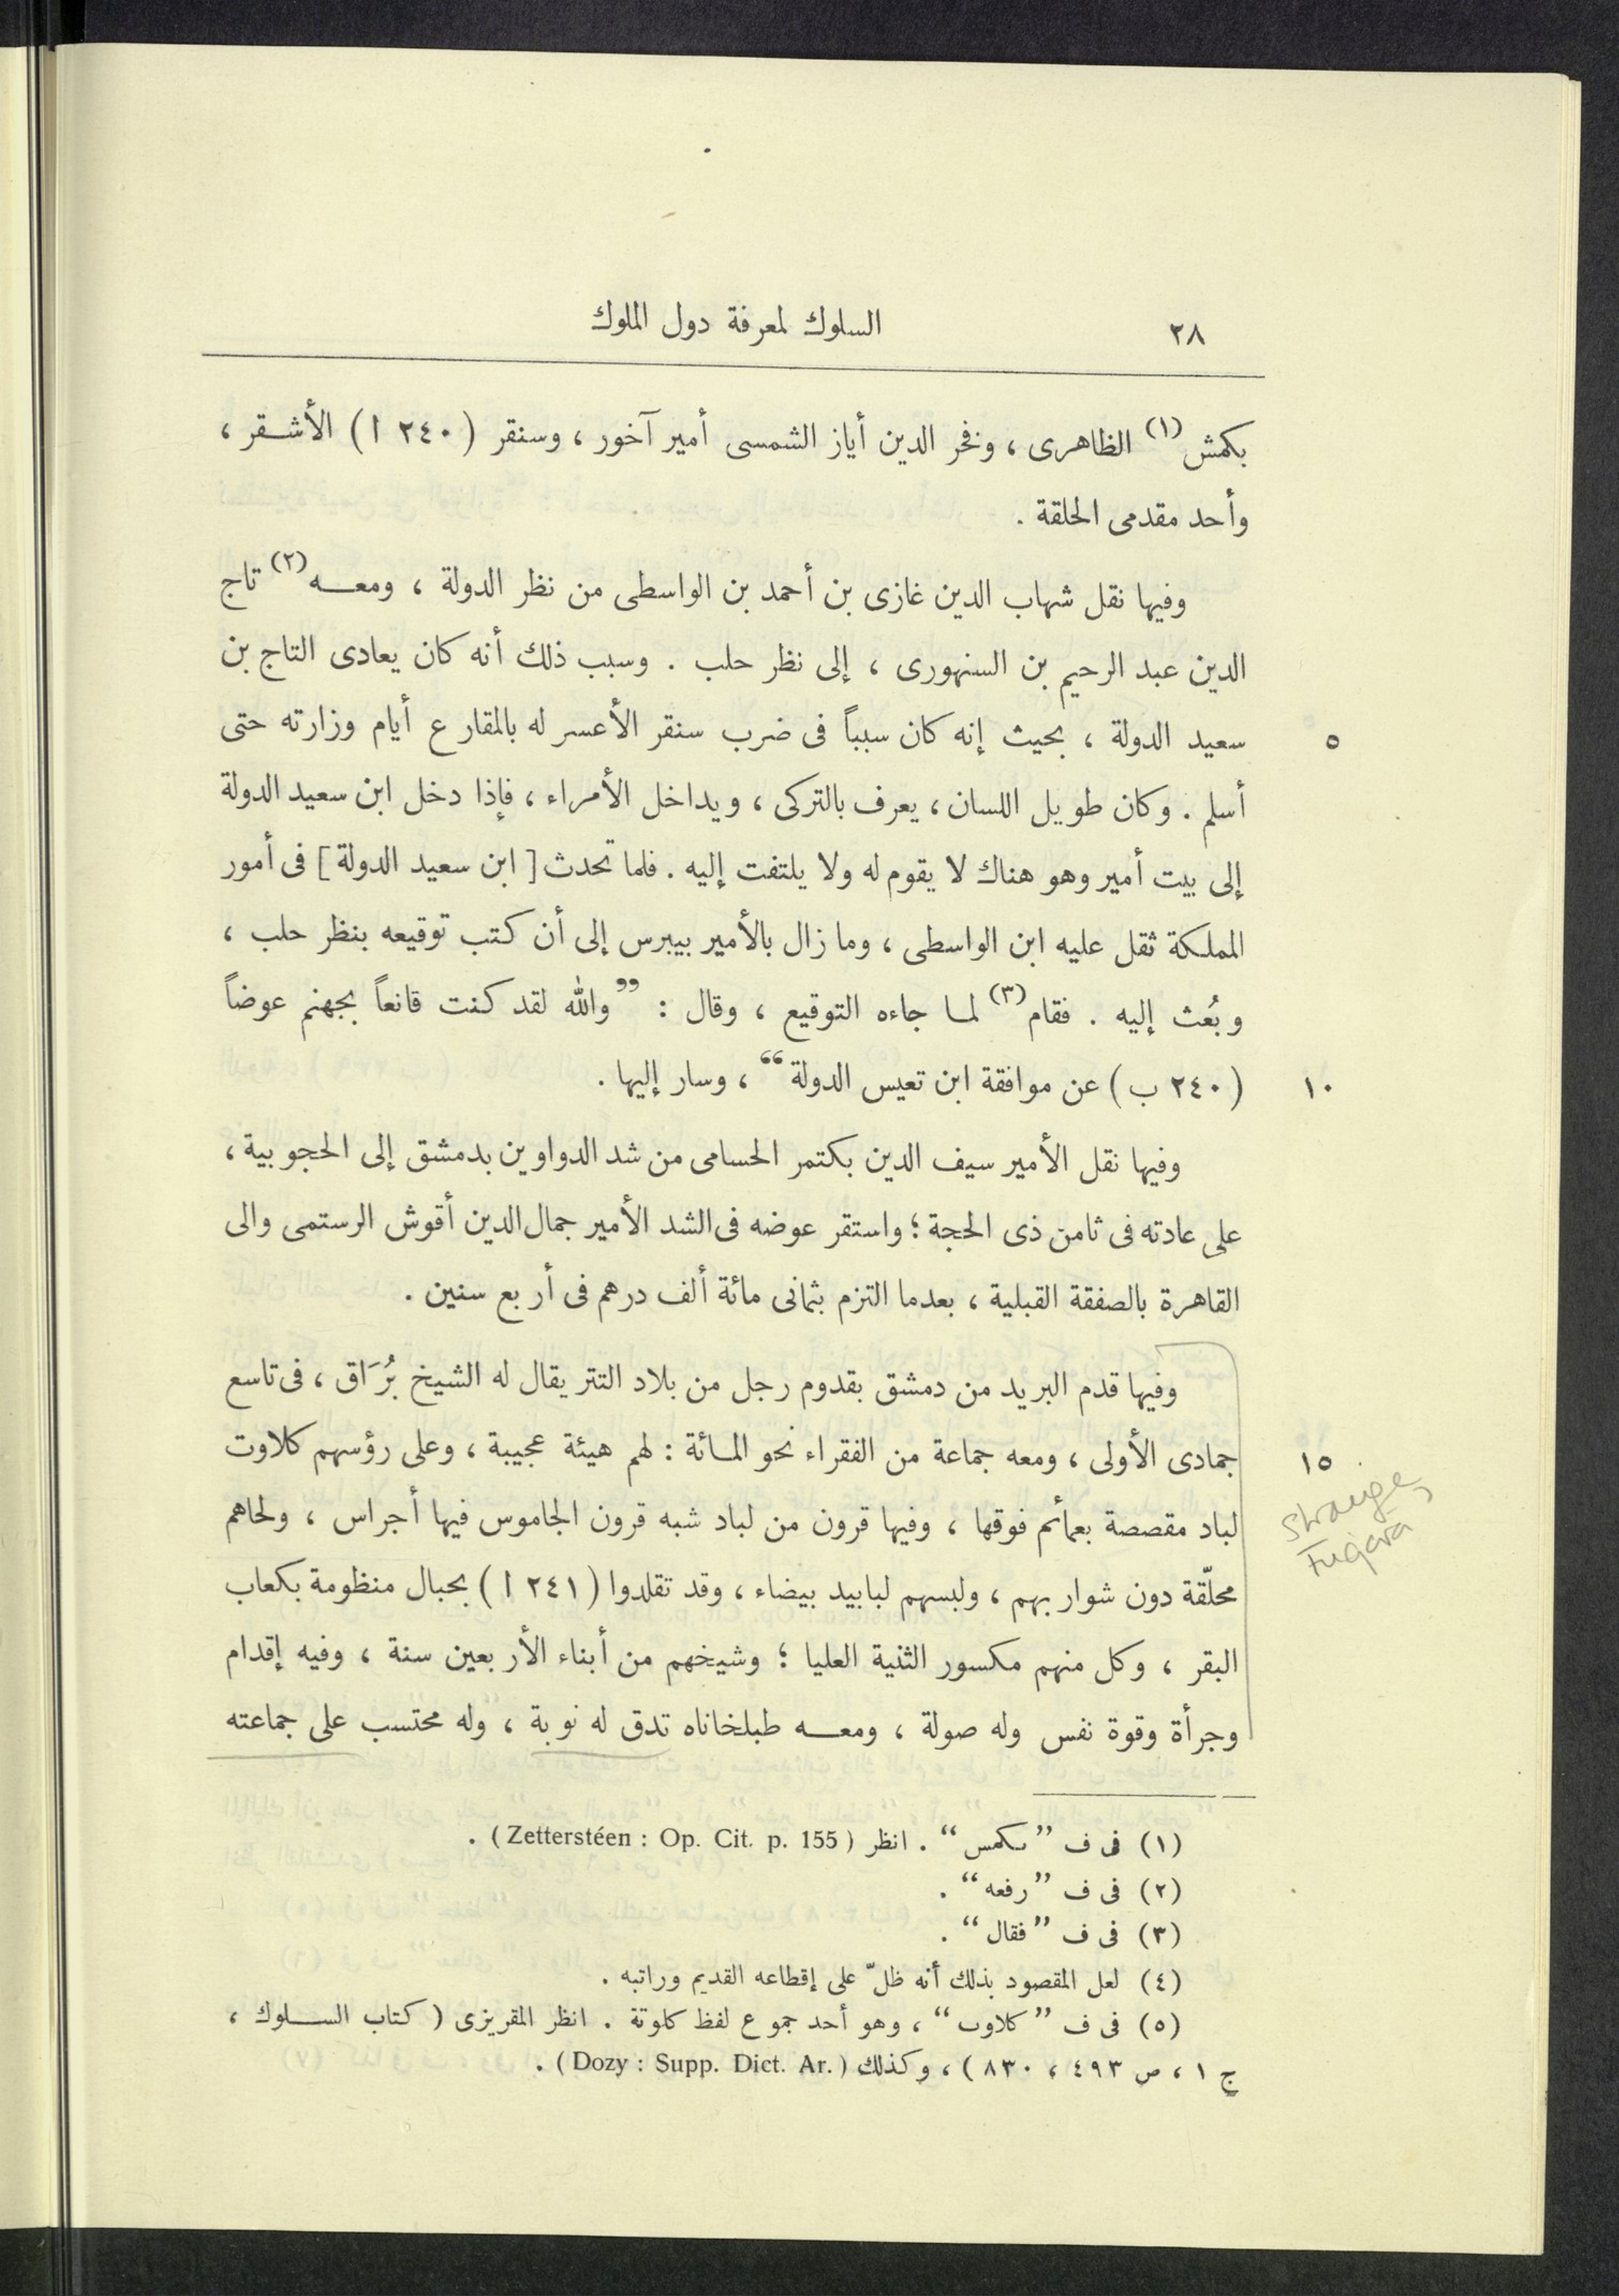 ٢٨ السلوك لمعرفة دول الملوك
بكمش(١) الظاهرى ، وفخر الدين أياز الشمسى أمير آخور ، وسنقر (٢٤٠ ا) الأشقر ،
وأحد مقدمى الحلقة .
وفيها نقل شهاب الدين غازى بن أحمد بن الواسطى من نظر الدولة ، ومعه(٢) تاج
الدين عبد الرحيم بن السنهورى ، إلى نظر حلب . وسبب ذلك أنه كان يعادى التاج بن
سعيد الدولة ، بحيث إنه كان سبباً فى ضرب سنقر الأعسر له بالمقارع أيام وزارته حتى
٥
أسلم . وكان طويل اللسان ، يعرف بالتركى ، ويداخل الأمراء ، فإذا دخل ابن سعيد الدولة
إلى بيت أمير وهو هناك لا يقوم له ولا يلتفت إليه . فلما تحدث [ ابن سعيد الدولة ] فى أمور
المملكة ثقل عليه ابن الواسطى ، وما زال بالأمير بيبرس إلى أن كتب توقيعه بنظر حلب ،
وبُعث إليه . فقام(٣) لما جاءه التوقيع ، وقال : ”والله لقد كنت قانعاً بجهنم عوضاً
(٢٤٠ ب) عن موافقة ابن تعيس الدولة“ ، وسار إليها .
١٠
وفيها نقل الأمير سيف الدين بكتمر الحسامى من شد الدواوين بدمشق إلى الحجوبية ،
على عادته فى ثامن ذى الحجة ؛ واستقر عوضه فى الشد الأمير جمال الدين أقوش الرستمى والى
القاهرة بالصفقة القبلية ، بعدما التزم بثمانى مائة ألف درهم فى أربع سنين .
وفيها قدم البريد من دمشق بقدوم رجل من بلاد التتر يقال له الشيخ بُرَاق ، فى تاسع
جمادى الأولى ، ومعه جماعة من الفقراء نحو المائة : لهم هيئة عجيبة ، وعلى رؤسهم كلاوت
١٥
لباد مقصصة بعمائم فوقها ، وفيها قرون من لباد شبه قرون الجاموس فيها أجراس ، ولحاهم
strange
Fuqara
محلّقة دون شواربهم ، ولبسهم لبابيد بيضاء ، وقد تقلدوا (٢٤١ ا) بحبال منظومة بكعاب
البقر ، وكل منهم مكسور الثنية العليا ؛ وشيخهم من أبناء الأربعين سنة ، وفيه إقدام
وجرأة وقوة نفس وله صولة ، ومعه طبلخاناه تدق له نوبة ، وله محتسب على جماعته
(١) فى ف ”ىكمس“ . انظر (Zetterstéen : Op. Cit. p. 155) .
(٢) فى ف ”رفعه“ .
(٣) فى ف ”فقال“ .
(٤) لعل المقصود بذلك أنه ظلّ على إقطاعه القديم وراتبه .
(٥) فى ف ”كلاوب“ ، وهو أحد جموع لفظ كلوتة . انظر المقريزى (كتاب السلوك ،
ج ١ ، ص ٤٩٣ ، ٨٣٠) ، وكذلك (Dozy : Supp. Dict. Ar.) .